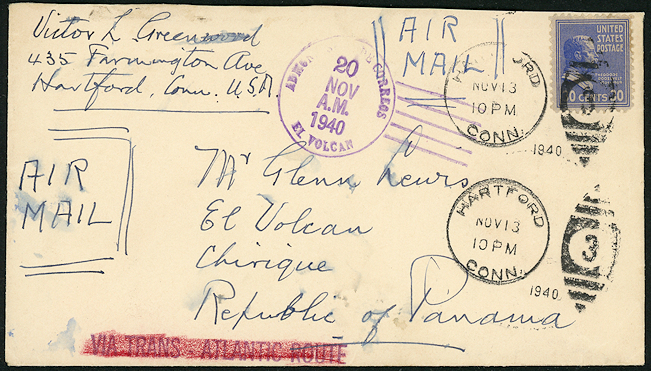 Victor L. Greenwood
435 Farmington Ave
Hartford, Conn. U.S.A.
AIR
MAIL
UNITED
STATES
POSTAGE
30 CENTS 30
DE CORREOS
20
NOV
A.M.
1940
EL VOLCAN
HARTFORD
NOV 13
10 PM
CONN.
1940
3
AIR
MAIL
Mr Glenn Lewis
El Volcan
Chirique
Republic of Panama
HARTFORD
NOV 13
10 PM
CONN.
1940
3
VIA TRANS-ATLANTIC ROUTE